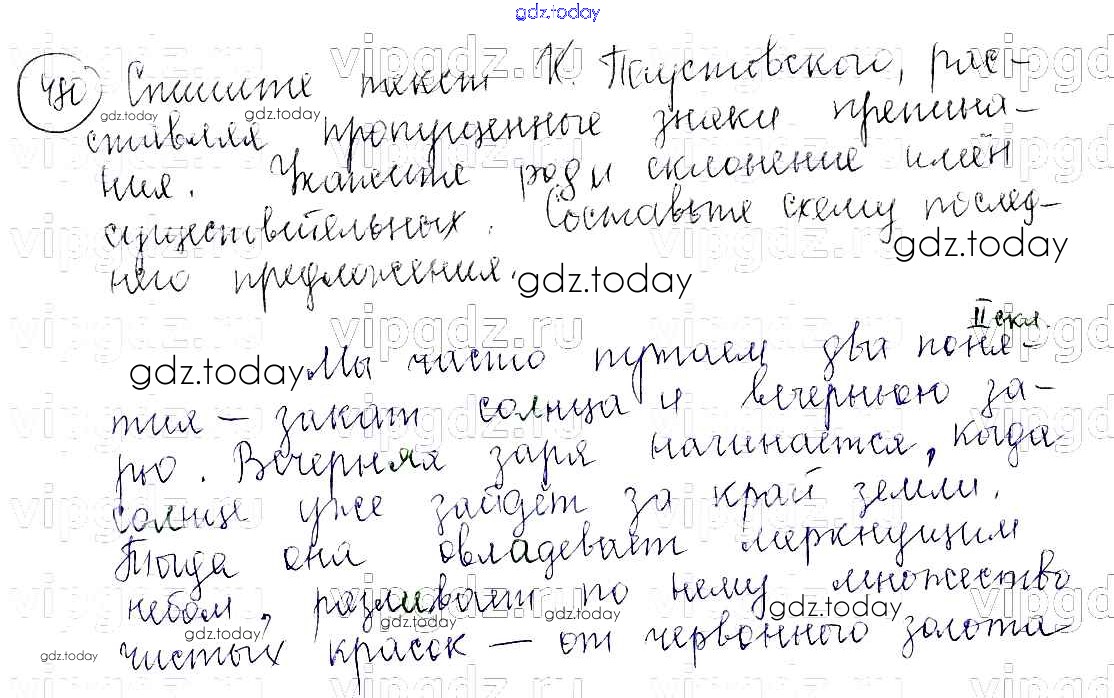 gdz.today
480 Спишите текст К. Паустовского, рас-
ставляя пропущенные знаки препина-
ния. Укажите род и склонение имён
существительных. Составьте схему послед-
него предложения.
II скл.
Мы часто путаем два поня-
тия — закат солнца и вечернюю за-
рю. Вечерняя заря начинается, когда
солнце уже зайдёт за край земли.
Тогда она овладевает меркнущим
небом, разливает по нему множество
чистых красок — от червонного золота
gdz.today
gdz.today
gdz.today
gdz.today
gdz.today
gdz.today
gdz.today
gdz.today
gdz.today
vipgdz.ru